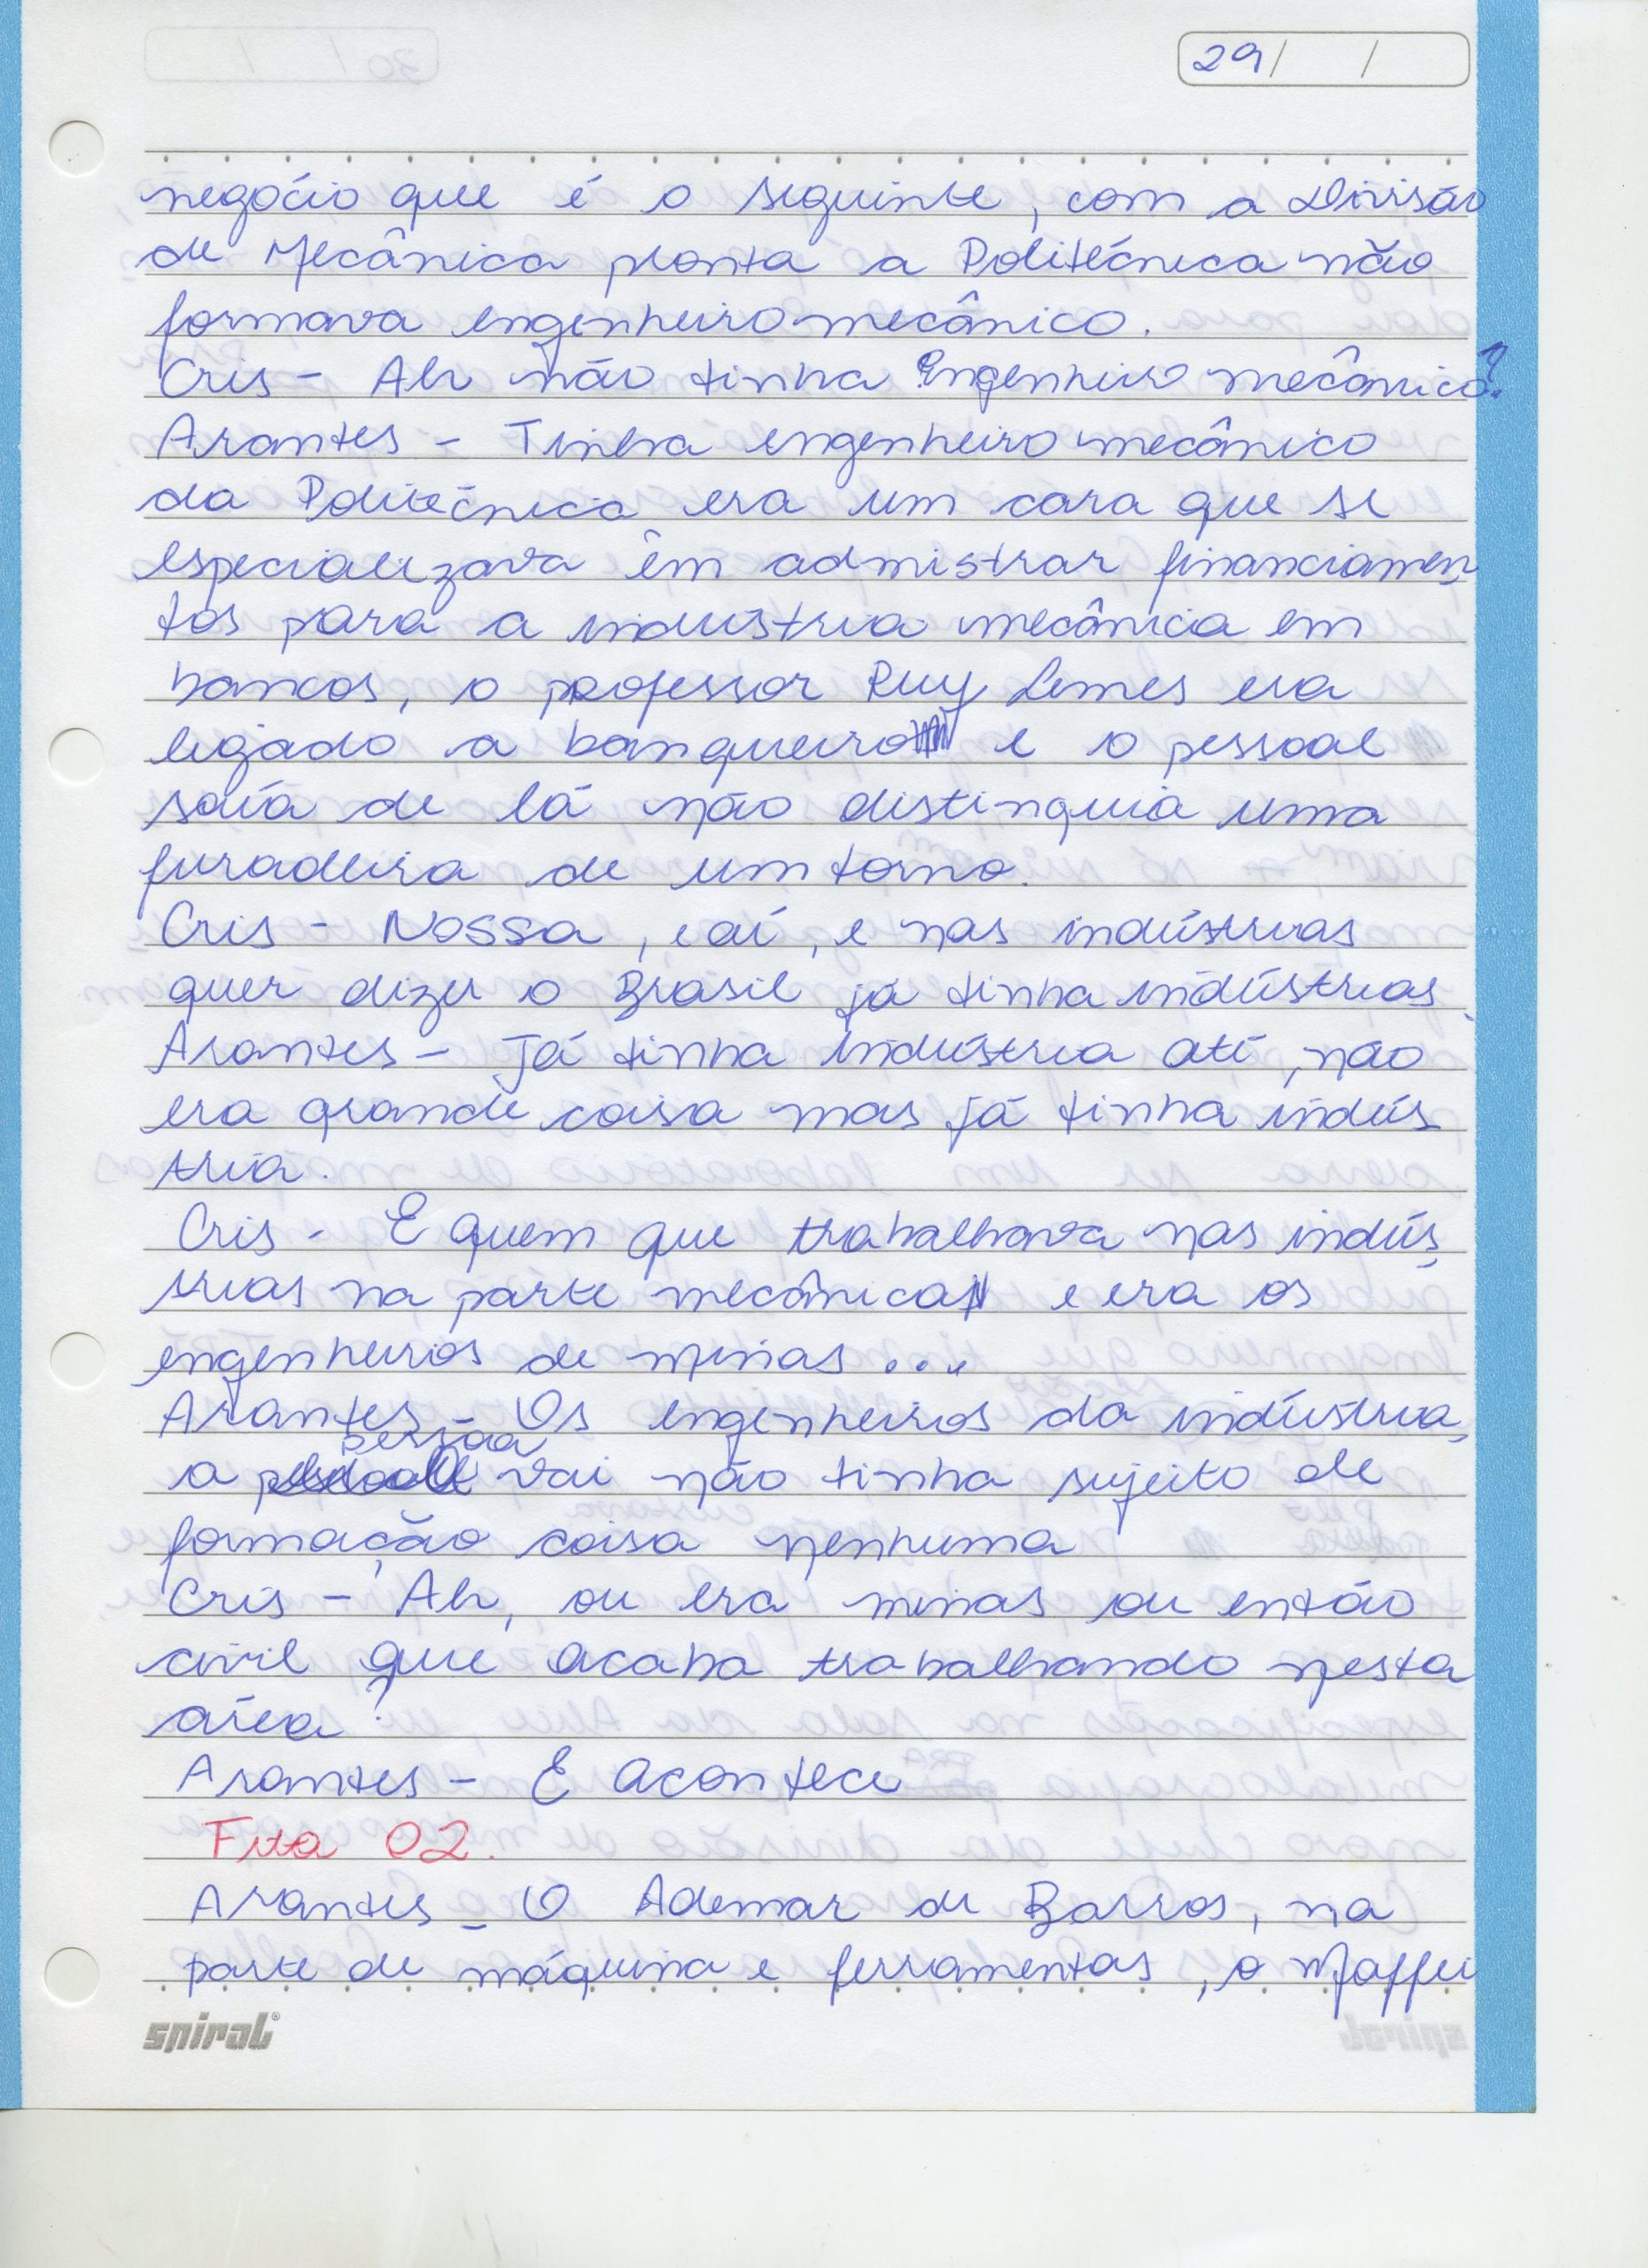 29/ /
negócio que é o seguinte, com a Divisão
de Mecânica pronta a Politécnica não
formava engenheiro mecânico.
Cris - Ah não tinha Engenheiro mecânico?
Arantes - Tinha engenheiro mecânico
da Politécnica era um cara que se
especializava em admistrar financiamen
tos para a indústria mecânica em
bancos, o professor Ruy Lemes era
ligado a banqueiro e o pessoal
saía de lá não distinguia uma
furadeira de um torno.
Cris - Nossa, e aí, e nas indústrias
quer dizer o Brasil já tinha indústrias.
Arantes - Já tinha indústria até, não
era grande coisa mas já tinha indús
tria.
Cris - E quem que trabalhava nas indús
trias na parte mecânica e era os
engenheiros de minas ...
Arantes - Os engenheiros da indústria,
a pessoa vai não tinha sujeito de
formação coisa nenhuma
Cris - Ah, ou era minas ou então
civil que acaba trabalhando nesta
área?
Arantes - E acontece
Fita 02.
Arantes - O Ademar de Barros, na
parte de máquina e ferramentas, o Maffei
spiral®